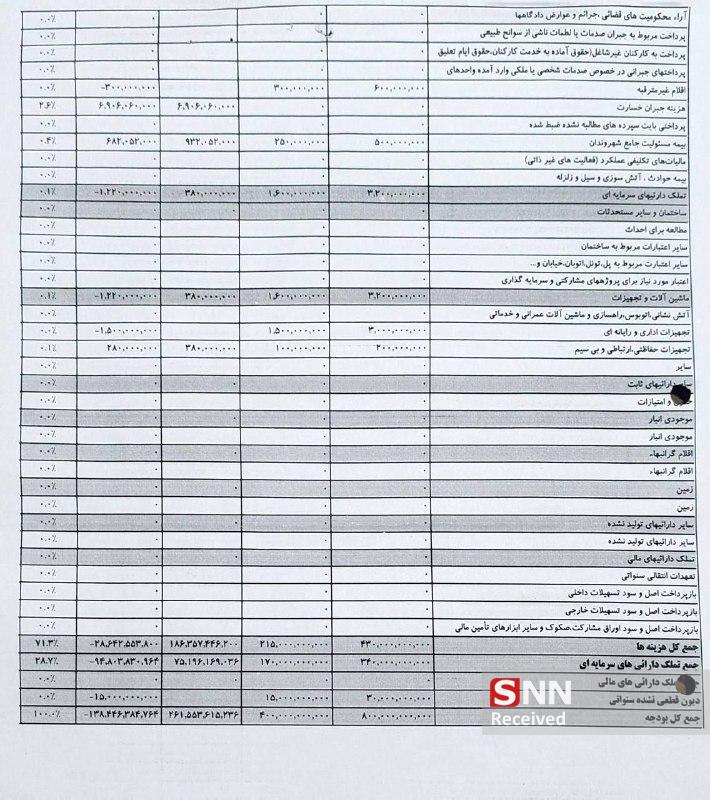 آراء محکومیت های قضائی ,جرائم و عوارض دادگاهها ۰ ۰ ۰ ۰.۰٪
پرداخت مربوط به جبران صدمات یا لطمات ناشی از سوانح طبیعی ۰ ۰ ۰ ۰.۰٪
پرداخت به کارکنان غیرشاغل(حقوق آماده به خدمت کارکنان,حقوق ایام تعلیق ۰ ۰ ۰ ۰.۰٪
پرداختهای جبرانی در خصوص صدمات شخصی یا ملکی وارد آمده واحدهای ۰ ۰ ۰ ۰.۰٪
اقلام غیرمترقبه ۶۰۰,۰۰۰,۰۰۰ ۳۰۰,۰۰۰,۰۰۰ -۳۰۰,۰۰۰,۰۰۰ ۰.۰٪
هزینه جبران خسارت ۰ ۰ ۶,۹۰۶,۰۶۰,۰۰۰ ۶,۹۰۶,۰۶۰,۰۰۰ ۲.۶٪
پرداختی بابت سپرده های مطالبه نشده ضبط شده ۰ ۰ ۰ ۰.۰٪
بیمه مسئولیت جامع شهروندان ۵۰۰,۰۰۰,۰۰۰ ۲۵۰,۰۰۰,۰۰۰ ۹۳۲,۰۵۲,۰۰۰ ۶۸۲,۰۵۲,۰۰۰ ۰.۴٪
مالیات‌های تکلیفی عملکرد (فعالیت های غیر ذاتی) ۰ ۰ ۰ ۰.۰٪
بیمه حوادث ، آتش سوزی و سیل و زلزله ۰ ۰ ۰ ۰.۰٪
تملک دارئیهای سرمایه ای ۳,۲۰۰,۰۰۰,۰۰۰ ۱,۶۰۰,۰۰۰,۰۰۰ ۳۸۰,۰۰۰,۰۰۰ -۱,۲۲۰,۰۰۰,۰۰۰ ۰.۱٪
ساختمان و سایر مستحدثات ۰ ۰ ۰ ۰ ۰.۰٪
مطالعه برای احداث ۰ ۰ ۰ ۰.۰٪
سایر اعتبارات مربوط به ساختمان ۰ ۰ ۰ ۰.۰٪
سایر اعتبارت مربوط به پل,تونل,اتوبان,خیابان و... ۰ ۰ ۰ ۰.۰٪
اعتبار مورد نیاز برای پروژههای مشارکتی و سرمایه گذاری ۰ ۰ ۰ ۰.۰٪
ماشین آلات و تجهیزات ۳,۲۰۰,۰۰۰,۰۰۰ ۱,۶۰۰,۰۰۰,۰۰۰ ۳۸۰,۰۰۰,۰۰۰ -۱,۲۲۰,۰۰۰,۰۰۰ ۰.۱٪
آتش نشانی,اتوبوس,راهسازی و ماشین آلات عمرانی و خدماتی ۰ ۰ ۰ ۰.۰٪
تجهیزات اداری و رایانه ای ۳,۰۰۰,۰۰۰,۰۰۰ ۱,۵۰۰,۰۰۰,۰۰۰ -۱,۵۰۰,۰۰۰,۰۰۰ ۰.۰٪
تجهیزات حفاظتی,ارتباطی و بی سیم ۲۰۰,۰۰۰,۰۰۰ ۱۰۰,۰۰۰,۰۰۰ ۳۸۰,۰۰۰,۰۰۰ ۲۸۰,۰۰۰,۰۰۰ ۰.۱٪
سایر ۰ ۰ ۰ ۰.۰٪
سایر دارائیهای ثابت ۰ ۰ ۰ ۰ ۰.۰٪
و امتیازات ۰ ۰ ۰ ۰.۰٪
موجودی انبار ۰ ۰ ۰ ۰ ۰.۰٪
موجودی انبار ۰ ۰ ۰ ۰.۰٪
اقلام گرانبهاء ۰ ۰ ۰ ۰ ۰.۰٪
اقلام گرانبهاء ۰ ۰ ۰ ۰.۰٪
زمین ۰ ۰ ۰ ۰ ۰.۰٪
زمین ۰ ۰ ۰ ۰.۰٪
سایر دارائیهای تولید نشده ۰ ۰ ۰ ۰ ۰.۰٪
سایر دارائیهای تولید نشده ۰ ۰ ۰ ۰.۰٪
تملک دارائیهای مالی ۰ ۰ ۰ ۰ ۰.۰٪
تعهدات انتقالی سنواتی ۰ ۰ ۰ ۰.۰٪
بازپرداخت اصل و سود تسهیلات داخلی ۰ ۰ ۰ ۰.۰٪
بازپرداخت اصل و سود تسهیلات خارجی ۰ ۰ ۰ ۰.۰٪
بازپرداخت اصل و سود اوراق مشارکت,صکوک و سایر ابزارهای تأمین مالی ۰ ۰ ۰ ۰.۰٪
جمع کل هزینه ها ۴۳۰,۰۰۰,۰۰۰,۰۰۰ ۲۱۵,۰۰۰,۰۰۰,۰۰۰ ۱۸۶,۳۵۷,۴۴۶,۲۰۰ -۲۸,۶۴۲,۵۵۳,۸۰۰ ۷۱.۳٪
جمع تملک دارائی های سرمایه ای ۳۴۰,۰۰۰,۰۰۰,۰۰۰ ۱۷۰,۰۰۰,۰۰۰,۰۰۰ ۷۵,۱۹۶,۱۶۹,۰۳۶ -۹۴,۸۰۳,۸۳۰,۹۶۴ ۲۸.۷٪
تملک دارائی های مالی ۰ ۰ ۰ ۰ ۰.۰٪
دیون قطعی نشده سنواتی ۳۰,۰۰۰,۰۰۰,۰۰۰ ۱۵,۰۰۰,۰۰۰,۰۰۰ -۱۵,۰۰۰,۰۰۰,۰۰۰ ۰.۰٪
جمع کل بودجه ۸۰۰,۰۰۰,۰۰۰,۰۰۰ ۴۰۰,۰۰۰,۰۰۰,۰۰۰ ۲۶۱,۵۵۳,۶۱۵,۲۳۶ -۱۳۸,۴۴۶,۳۸۴,۷۶۴ ۱۰۰.۰٪
SNN
Received